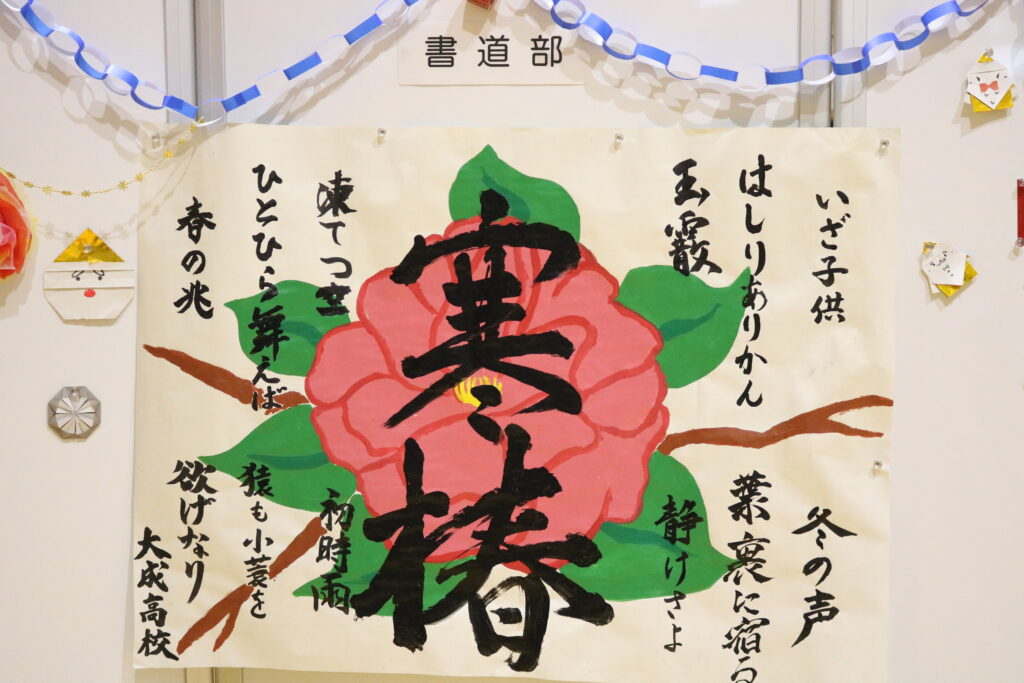 書道部
いざ子供
はしりありかん
玉霰
冬の声
葉裏に宿る
静けさよ
寒椿
凍てつ空
ひとひら舞えば
春の兆
初時雨
猿も小蓑を
欲げなり
大成高校